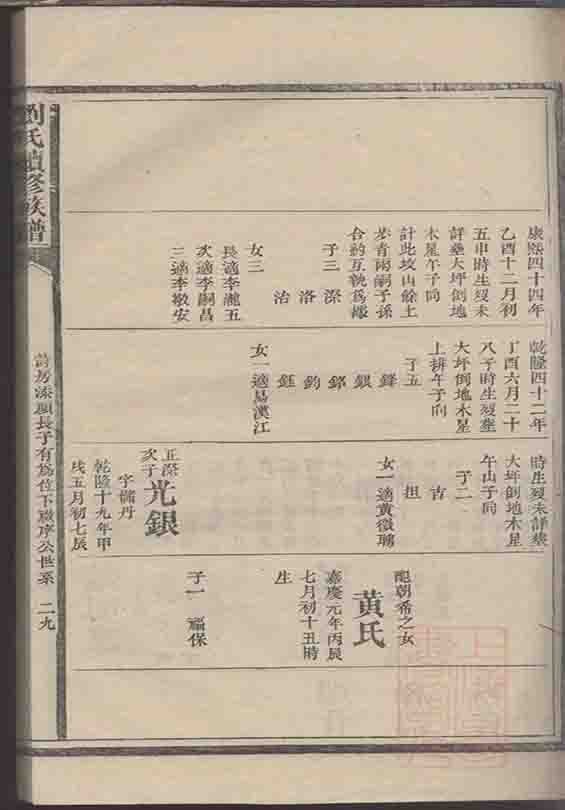 康熙四十四年
乙酉十二月初
五申時生歿未
詳塟大坪倒地
木星午子向
計此坟山餘土
合約互執爲據
子三 深
洛
治
女三
長適李瀧五
次適李嗣昌
三適李敬安
乾隆四十二年
丁酉六月二十
八子時生歿塟
大坪倒地木星
上排午子向
子五
鐸
銀
鈞
鈺
女一適易漢江
時生歿未詳塟
大坪倒地木星
午山子向
子二
吉
担
女一適黃徵聘
正深
次子光銀
字儲丹
乾隆十九年甲
戌五月初七辰
配朝希之女
黃氏
嘉慶元年丙辰
七月初十丑時
生
子一 福保
劉氏續修族譜
長子有爲位下職序公世系 二九